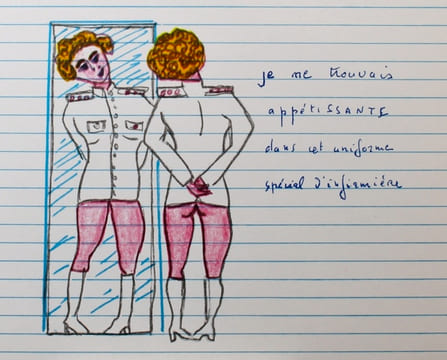 je me trouvais
appétISSANTE
dans cet uniforme
spécial d'infirmière